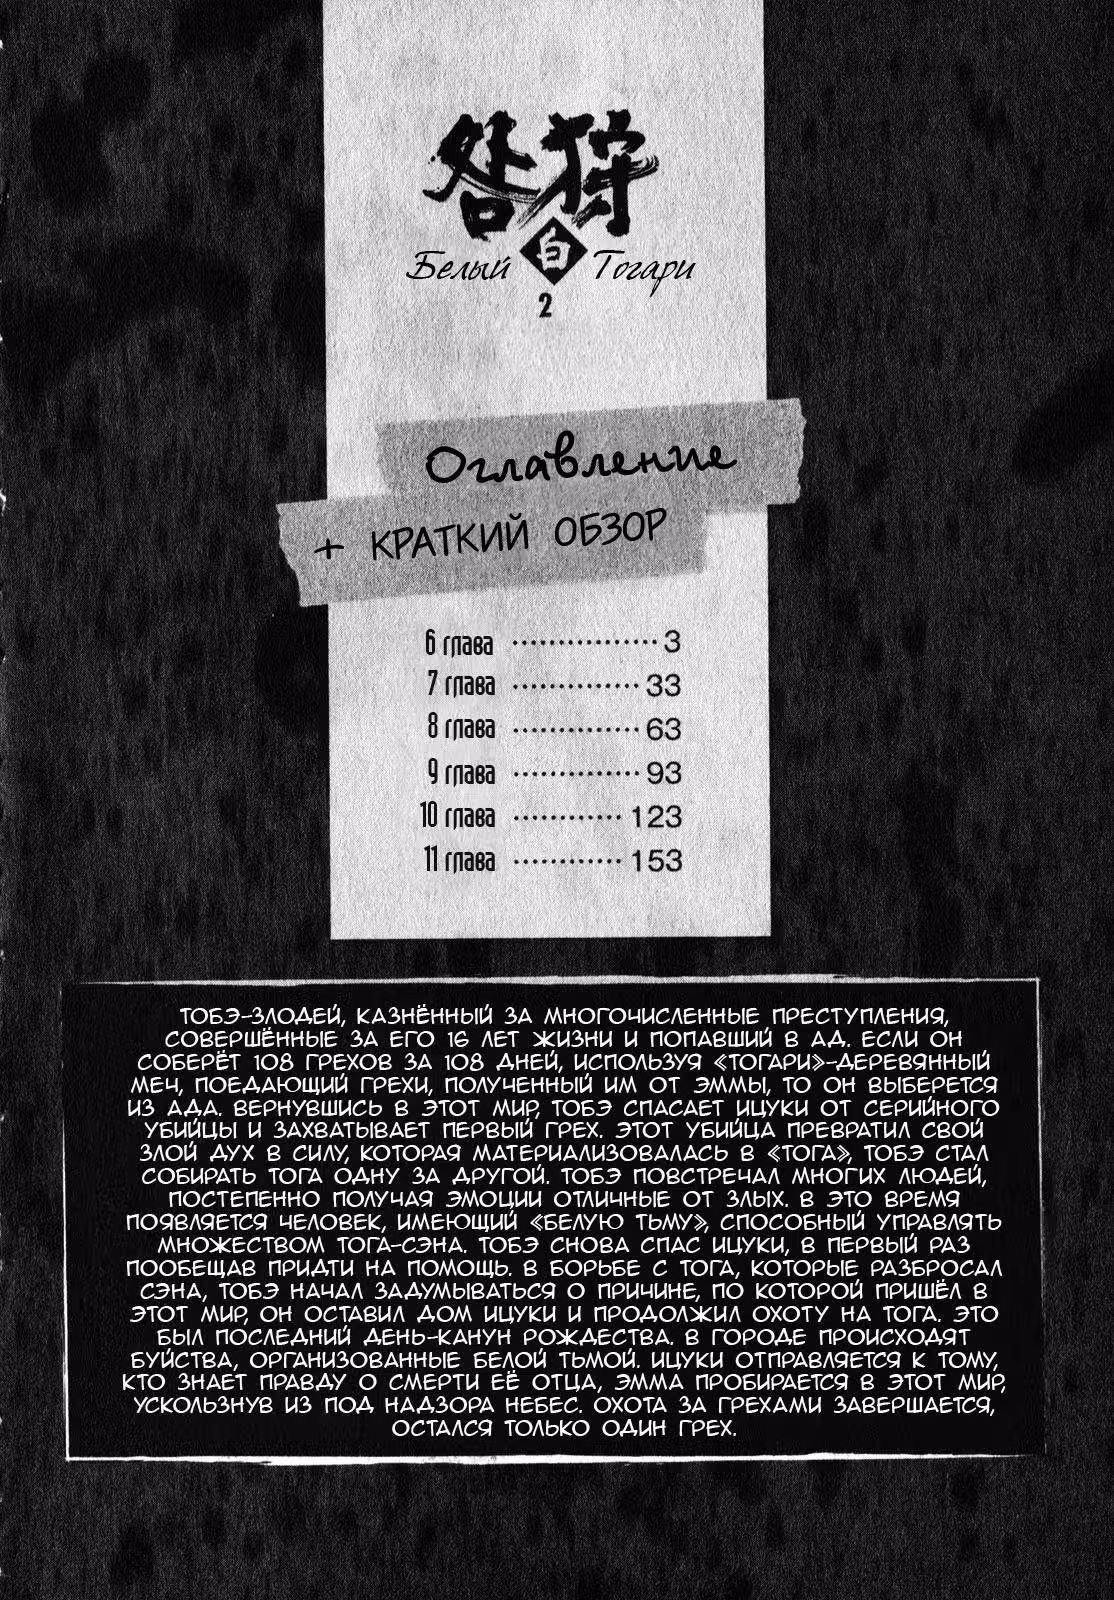 咎狩
白
Белый Тогари
2
Оглавление
+ КРАТКИЙ ОБЗОР
6 глава ················ 3
7 глава ·············· 33
8 глава ·············· 63
9 глава ·············· 93
10 глава ············ 123
11 глава ············ 153
ТОБЭ-ЗЛОДЕЙ, КАЗНЁННЫЙ ЗА МНОГОЧИСЛЕННЫЕ ПРЕСТУПЛЕНИЯ,
СОВЕРШЁННЫЕ ЗА ЕГО 16 ЛЕТ ЖИЗНИ И ПОПАВШИЙ В АД. ЕСЛИ ОН
СОБЕРЁТ 108 ГРЕХОВ ЗА 108 ДНЕЙ, ИСПОЛЬЗУЯ «ТОГАРИ»-ДЕРЕВЯННЫЙ
МЕЧ, ПОЕДАЮЩИЙ ГРЕХИ, ПОЛУЧЕННЫЙ ИМ ОТ ЭММЫ, ТО ОН ВЫБЕРЕТСЯ
ИЗ АДА. ВЕРНУВШИСЬ В ЭТОТ МИР, ТОБЭ СПАСАЕТ ИЦУКИ ОТ СЕРИЙНОГО
УБИЙЦЫ И ЗАХВАТЫВАЕТ ПЕРВЫЙ ГРЕХ. ЭТОТ УБИЙЦА ПРЕВРАТИЛ СВОЙ
ЗЛОЙ ДУХ В СИЛУ, КОТОРАЯ МАТЕРИАЛИЗОВАЛАСЬ В «ТОГА», ТОБЭ СТАЛ
СОБИРАТЬ ТОГА ОДНУ ЗА ДРУГОЙ. ТОБЭ ПОВСТРЕЧАЛ МНОГИХ ЛЮДЕЙ,
ПОСТЕПЕННО ПОЛУЧАЯ ЭМОЦИИ ОТЛИЧНЫЕ ОТ ЗЛЫХ. В ЭТО ВРЕМЯ
ПОЯВЛЯЕТСЯ ЧЕЛОВЕК, ИМЕЮЩИЙ «БЕЛУЮ ТЬМУ», СПОСОБНЫЙ УПРАВЛЯТЬ
МНОЖЕСТВОМ ТОГА-СЭНА. ТОБЭ СНОВА СПАС ИЦУКИ, В ПЕРВЫЙ РАЗ
ПООБЕЩАВ ПРИДТИ НА ПОМОЩЬ. В БОРЬБЕ С ТОГА, КОТОРЫЕ РАЗБРОСАЛ
СЭНА, ТОБЭ НАЧАЛ ЗАДУМЫВАТЬСЯ О ПРИЧИНЕ, ПО КОТОРОЙ ПРИШЁЛ В
ЭТОТ МИР, ОН ОСТАВИЛ ДОМ ИЦУКИ И ПРОДОЛЖИЛ ОХОТУ НА ТОГА. ЭТО
БЫЛ ПОСЛЕДНИЙ ДЕНЬ-КАНУН РОЖДЕСТВА. В ГОРОДЕ ПРОИСХОДЯТ
БУЙСТВА, ОРГАНИЗОВАННЫЕ БЕЛОЙ ТЬМОЙ. ИЦУКИ ОТПРАВЛЯЕТСЯ К ТОМУ,
КТО ЗНАЕТ ПРАВДУ О СМЕРТИ ЕЁ ОТЦА, ЭММА ПРОБИРАЕТСЯ В ЭТОТ МИР,
УСКОЛЬЗНУВ ИЗ ПОД НАДЗОРА НЕБЕС. ОХОТА ЗА ГРЕХАМИ ЗАВЕРШАЕТСЯ,
ОСТАЛСЯ ТОЛЬКО ОДИН ГРЕХ.